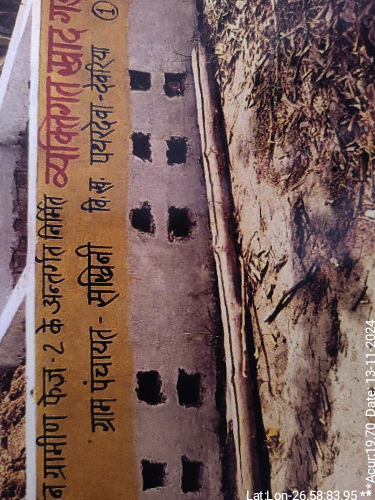 न ग्रामीण फेज-2 के अन्तर्गत निर्मित व्यक्तिगत खाद ग
ग्राम पंचायत- सखिनी वि.ख. पथरदेवा-देवरिया
1
Lat:Lon-26.58:83.95 ***Acur19.70 Date, 13-11-2024